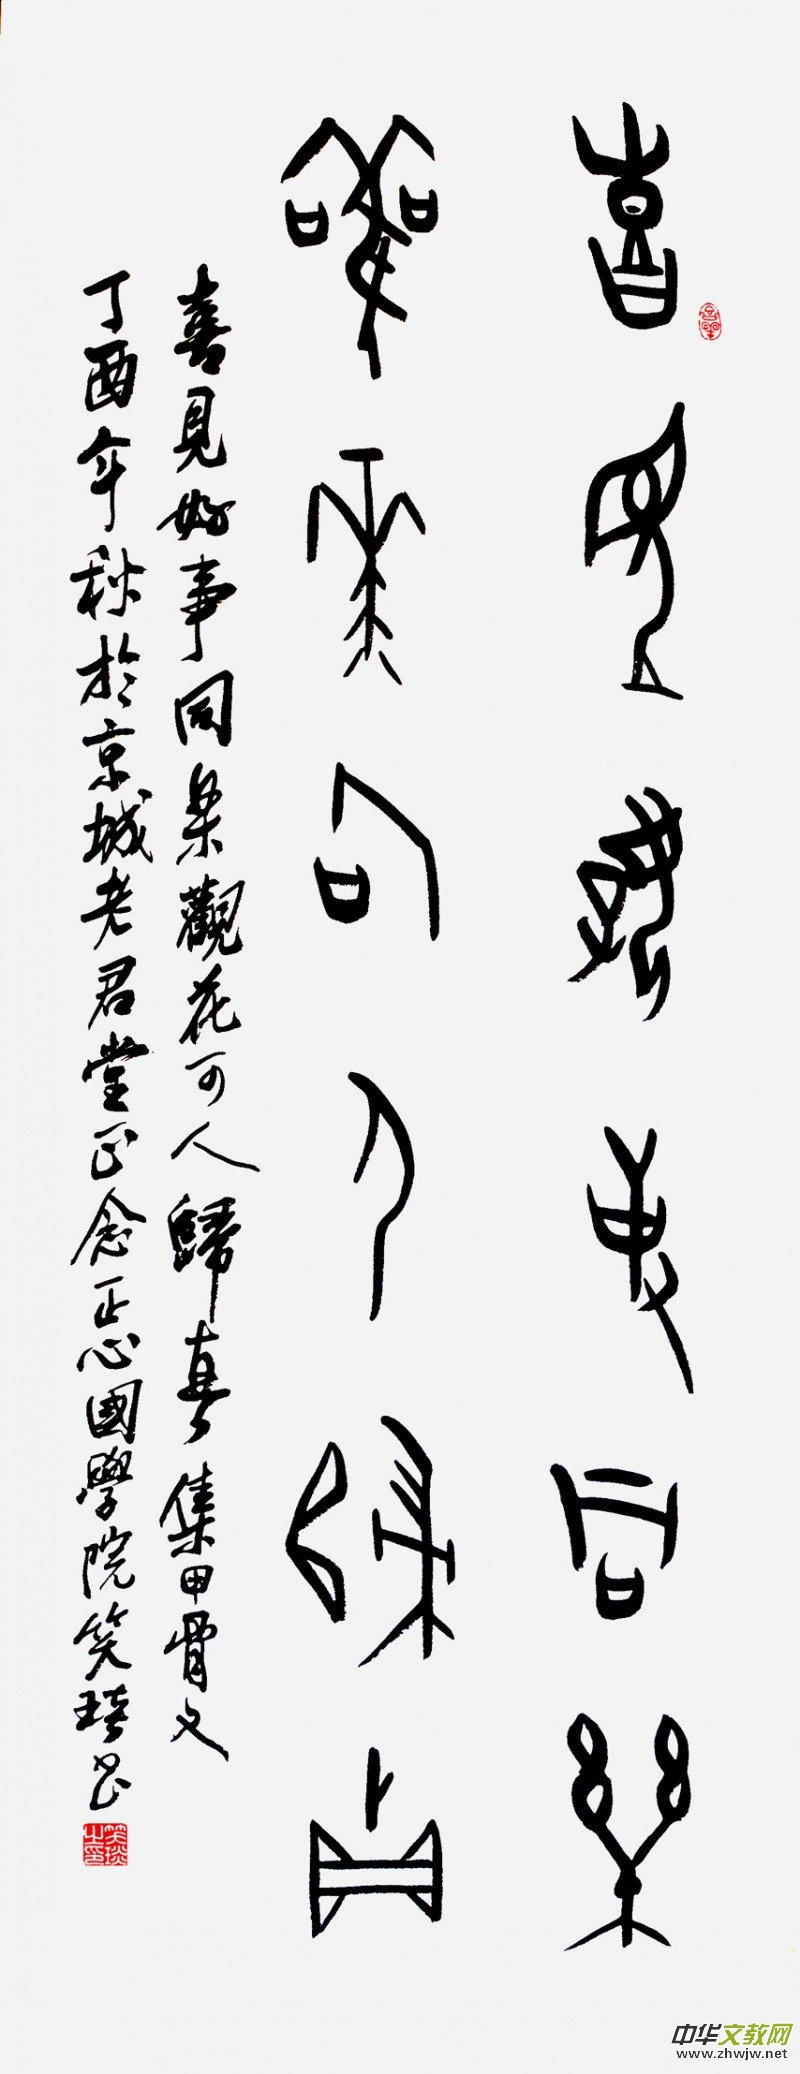 喜見好事同樂
觀花可人歸真
喜見好事同樂觀花可人歸真集甲骨文
丁酉年秋於京城老君堂正念正心國學院笑书
中华文教网
www.zhwjw.net